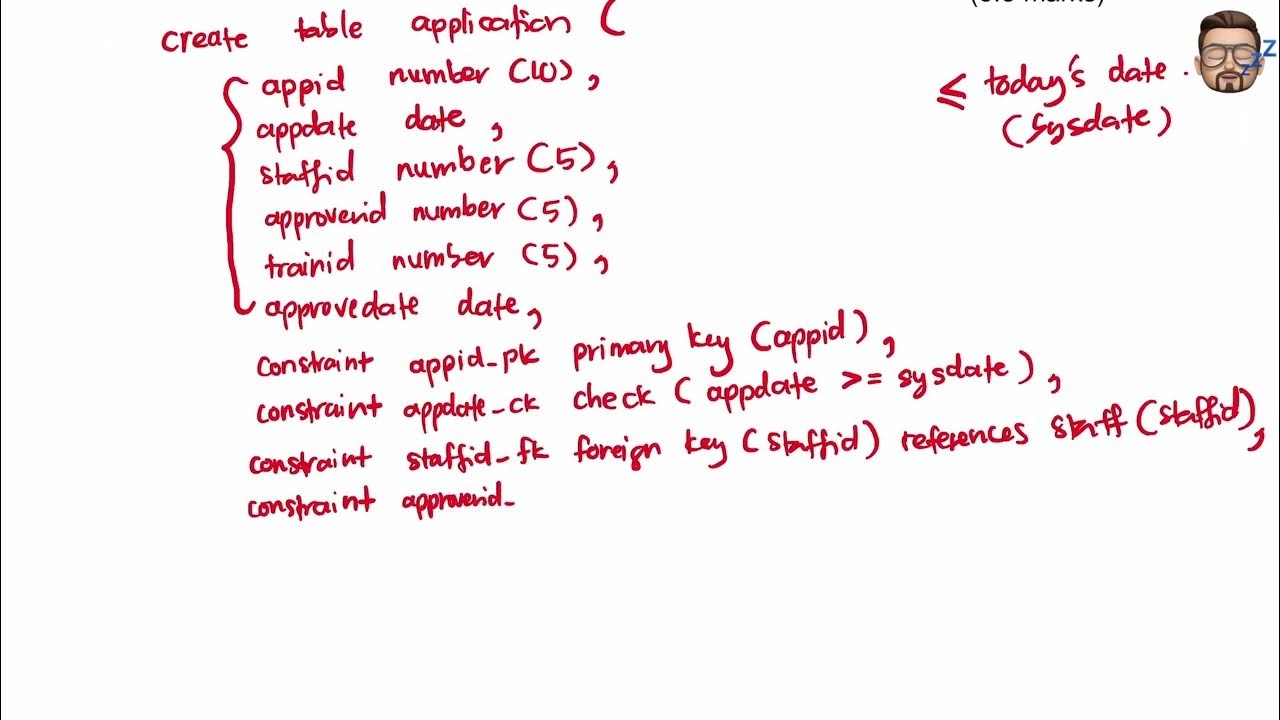 create table application (
appid number (10),
appdate date,
staffid number (5),
approverid number (5),
trainid number (5),
approvedate date,
constraint appid_pk primary key (appid),
constraint appdate_ck check (appdate >= sysdate),
constraint staffid_fk foreign key (staffid) references staff (staffid),
constraint approverid_
≤ today's date.
(sysdate)
z z z